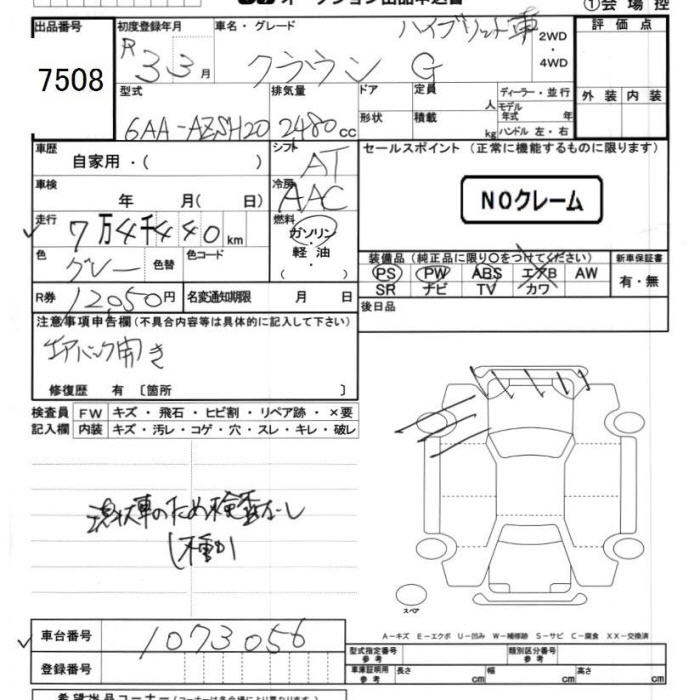 オークション出品申込書 ①会場控
出品番号 初度登録年月 車名・グレード ハイブリッド車 2WD・4WD 評価点
7508 R33月 クラウン G
型式 排気量 ドア 定員 人 ディーラー・並行 外装 内装
6AA-AZSH20 2480cc 形状 積載 kg モデル年式 年 ハンドル 左・右
車歴 自家用・( ) シフト AT セールスポイント(正常に機能するものに限ります)
車検 年 月( 日) 冷房 AAC NOクレーム
走行 7万4千440km 燃料 ガソリン・軽油・( )
色 グレー 色替 色コード 装備品(純正品に限り○をつけてください) 新車保証書
PS PW ABS エアB AW 有・無
R券 12,050円 名変通知期限 月 日 SR ナビ TV カワ
後日品
注意事項申告欄(不具合内容等は具体的に記入して下さい)
エアバック開き
修復歴 有 〔箇所 〕
検査員 FW キズ・飛石・ヒビ割・リペア跡・×要
記入欄 内装 キズ・汚レ・コゲ・穴・スレ・キレ・破レ
現状車のため検査なし
スペア
A-キズ E-エクボ U-凹み W-補修跡 S-サビ C-腐食 XX-交換済
車台番号 1073056
型式指定番号 参考 類別区分番号 参考
登録番号 車庫証明用 参考 長さ cm 幅 cm 高さ cm
希望出品コーナー(コーナーは各会場により異なります)